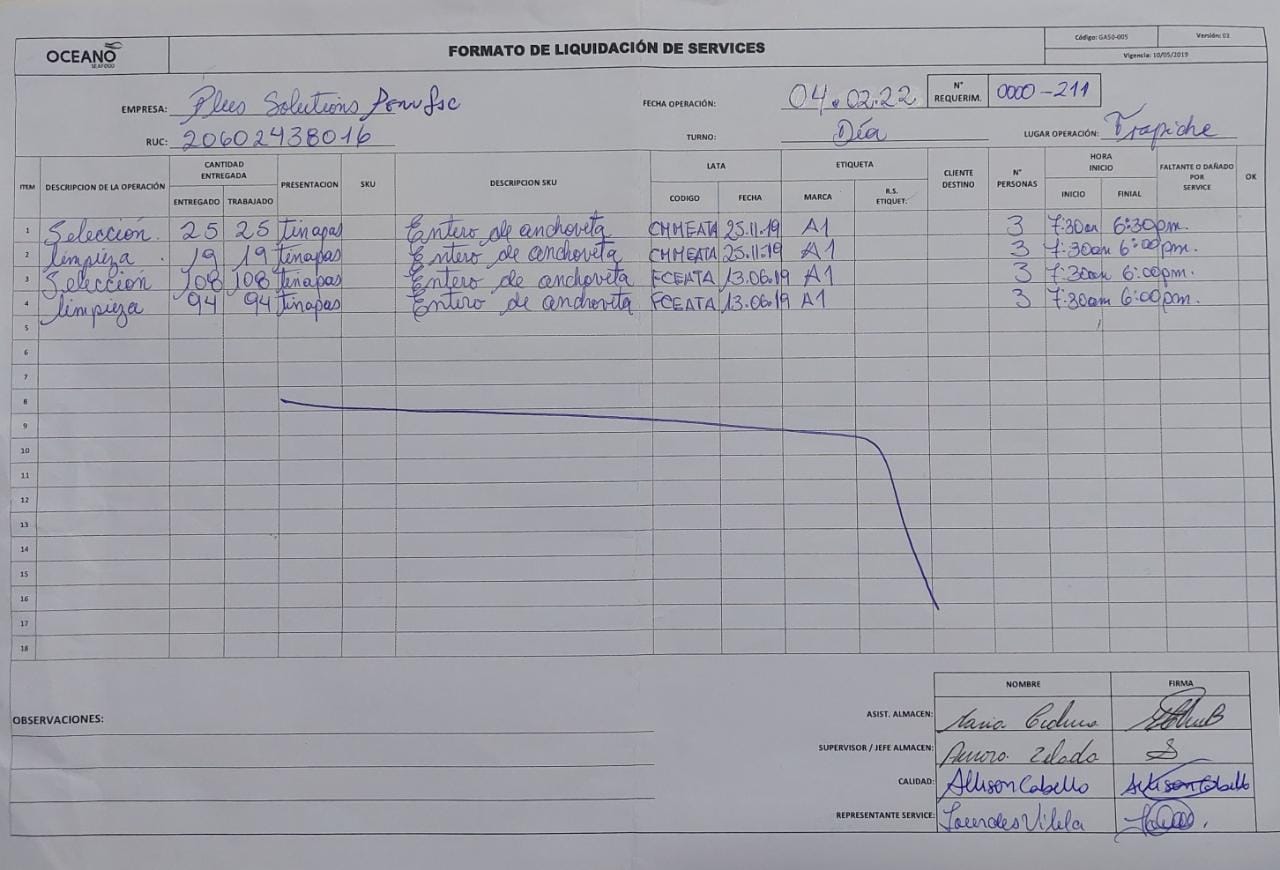 OCEANO
SEAFOOD
FORMATO DE LIQUIDACIÓN DE SERVICES
Código: GASO-005 Versión: 03
Vigencia: 10/05/2019
EMPRESA: Plus Solutions Peru Sac
FECHA OPERACIÓN: 04.02.22
N° REQUERIM. 0000-211
RUC: 20602438016
TURNO: Día
LUGAR OPERACIÓN: Trapiche
ITEM DESCRIPCION DE LA OPERACIÓN CANTIDAD ENTREGADA PRESENTACION SKU DESCRIPCION SKU LATA ETIQUETA CLIENTE DESTINO N° PERSONAS HORA INICIO FALTANTE O DAÑADO POR SERVICE OK
ENTREGADO TRABAJADO CODIGO FECHA MARCA R.S. ETIQUET. INICIO FINIAL
1 Selección. 25 25 tinapas Entero de anchoveta CHMEATA 25.11.19 A1 3 7:30am 6:30pm.
2 limpieza. 19 19 tinapas Entero de anchoveta CHMEATA 25.11.19 A1 3 7:30am 6:00pm.
3 Selección 108 108 tinapas Entero de anchoveta FCEATA 13.06.19 A1 3 7:30am 6:00pm.
4 limpieza 94 94 tinapas Entero de anchoveta FCEATA 13.06.19 A1 3 7:30am 6:00pm.
5
6
7
8
9
10
11
12
13
14
15
16
17
18
NOMBRE FIRMA
OBSERVACIONES:
ASIST. ALMACEN: Maria
SUPERVISOR / JEFE ALMACEN: Aurora Zelada
CALIDAD: Allison Cabello Allison Cabello
REPRESENTANTE SERVICE: Lourdes Vilela